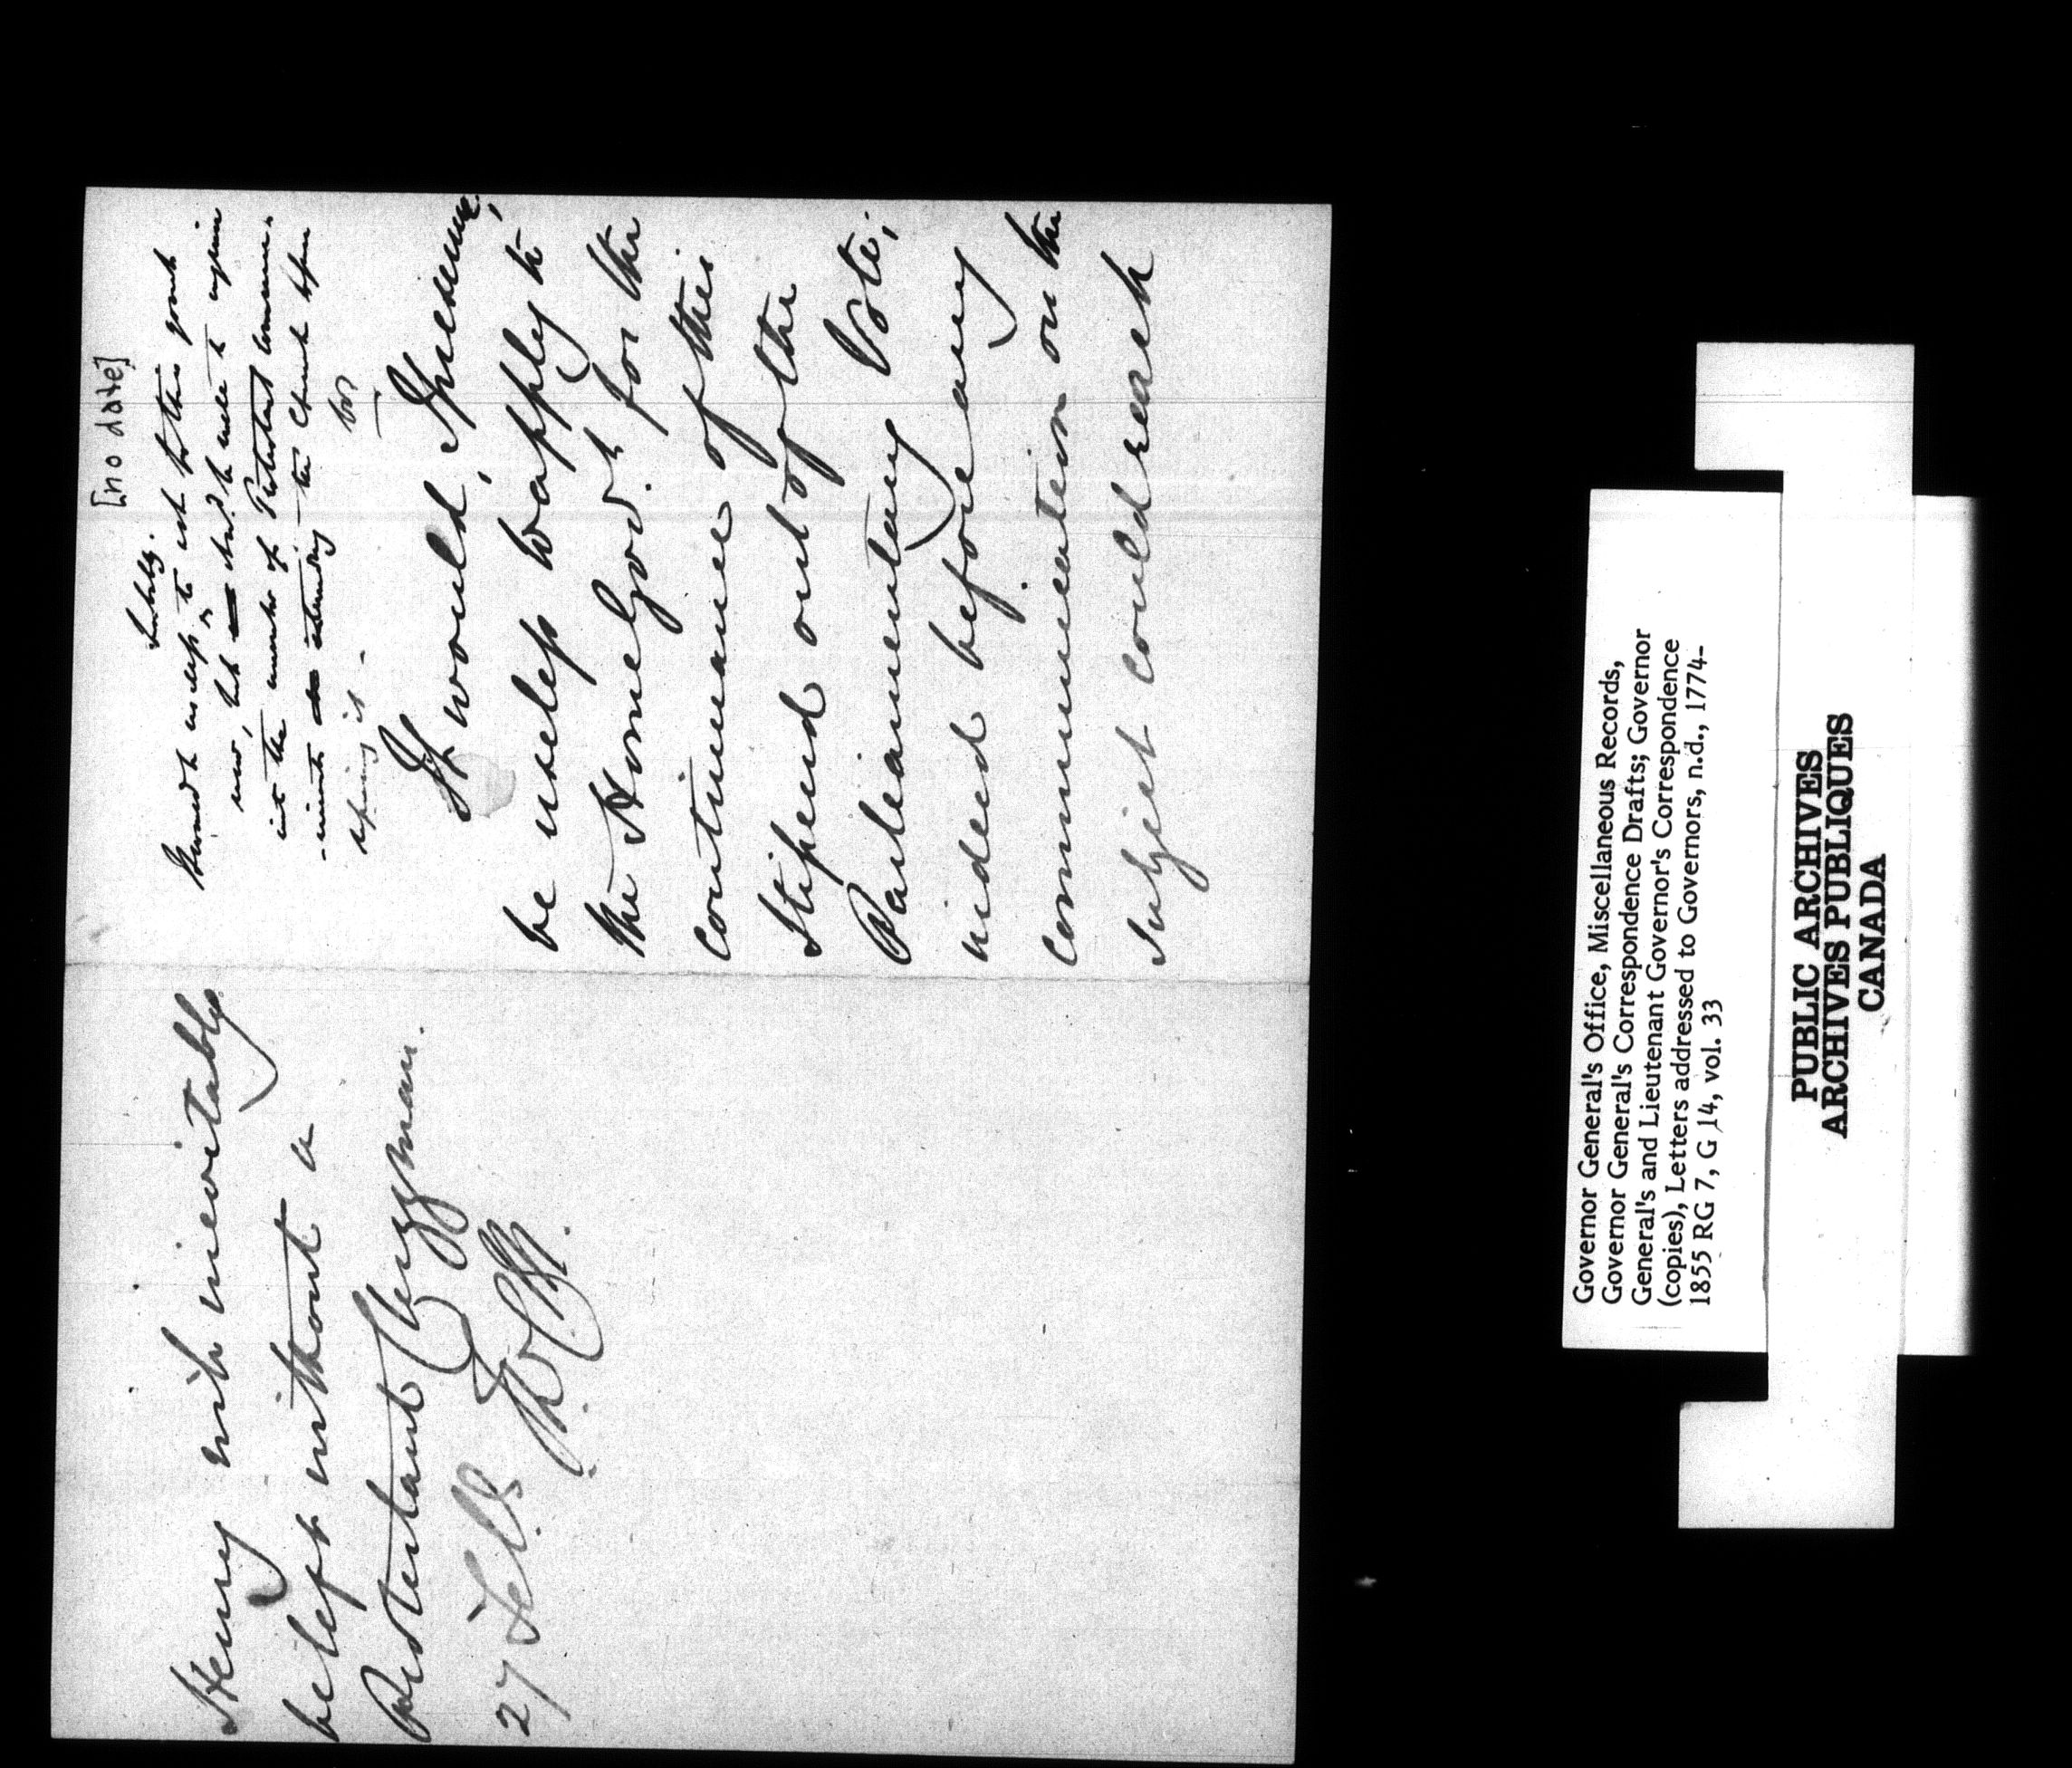 Henry will inevitably
be left without a
Protestant Clergyman.
27 Feb
[no date]
Sub.
useless to ask for this grant
now, but to enquire
into the number of Protestant
the Church
It would, I presume,
be useless to apply to
the Home Govt. for the
continuance of this
Stipend out of the
Parliamentary Vote;
indeed before any
communication on the
subject could reach
Governor General's Office, Miscellaneous Records,
Governor General's Correspondence Drafts; Governor
General's and Lieutenant Governor's Correspondence
(copies), Letters addressed to Governors, n.d., 1774-
1855 RG 7, G 14, vol. 33
PUBLIC ARCHIVES
ARCHIVES PUBLIQUES
CANADA